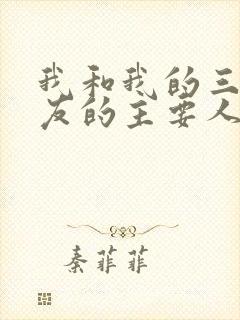 我和我的三
友的主要人
秦菲菲